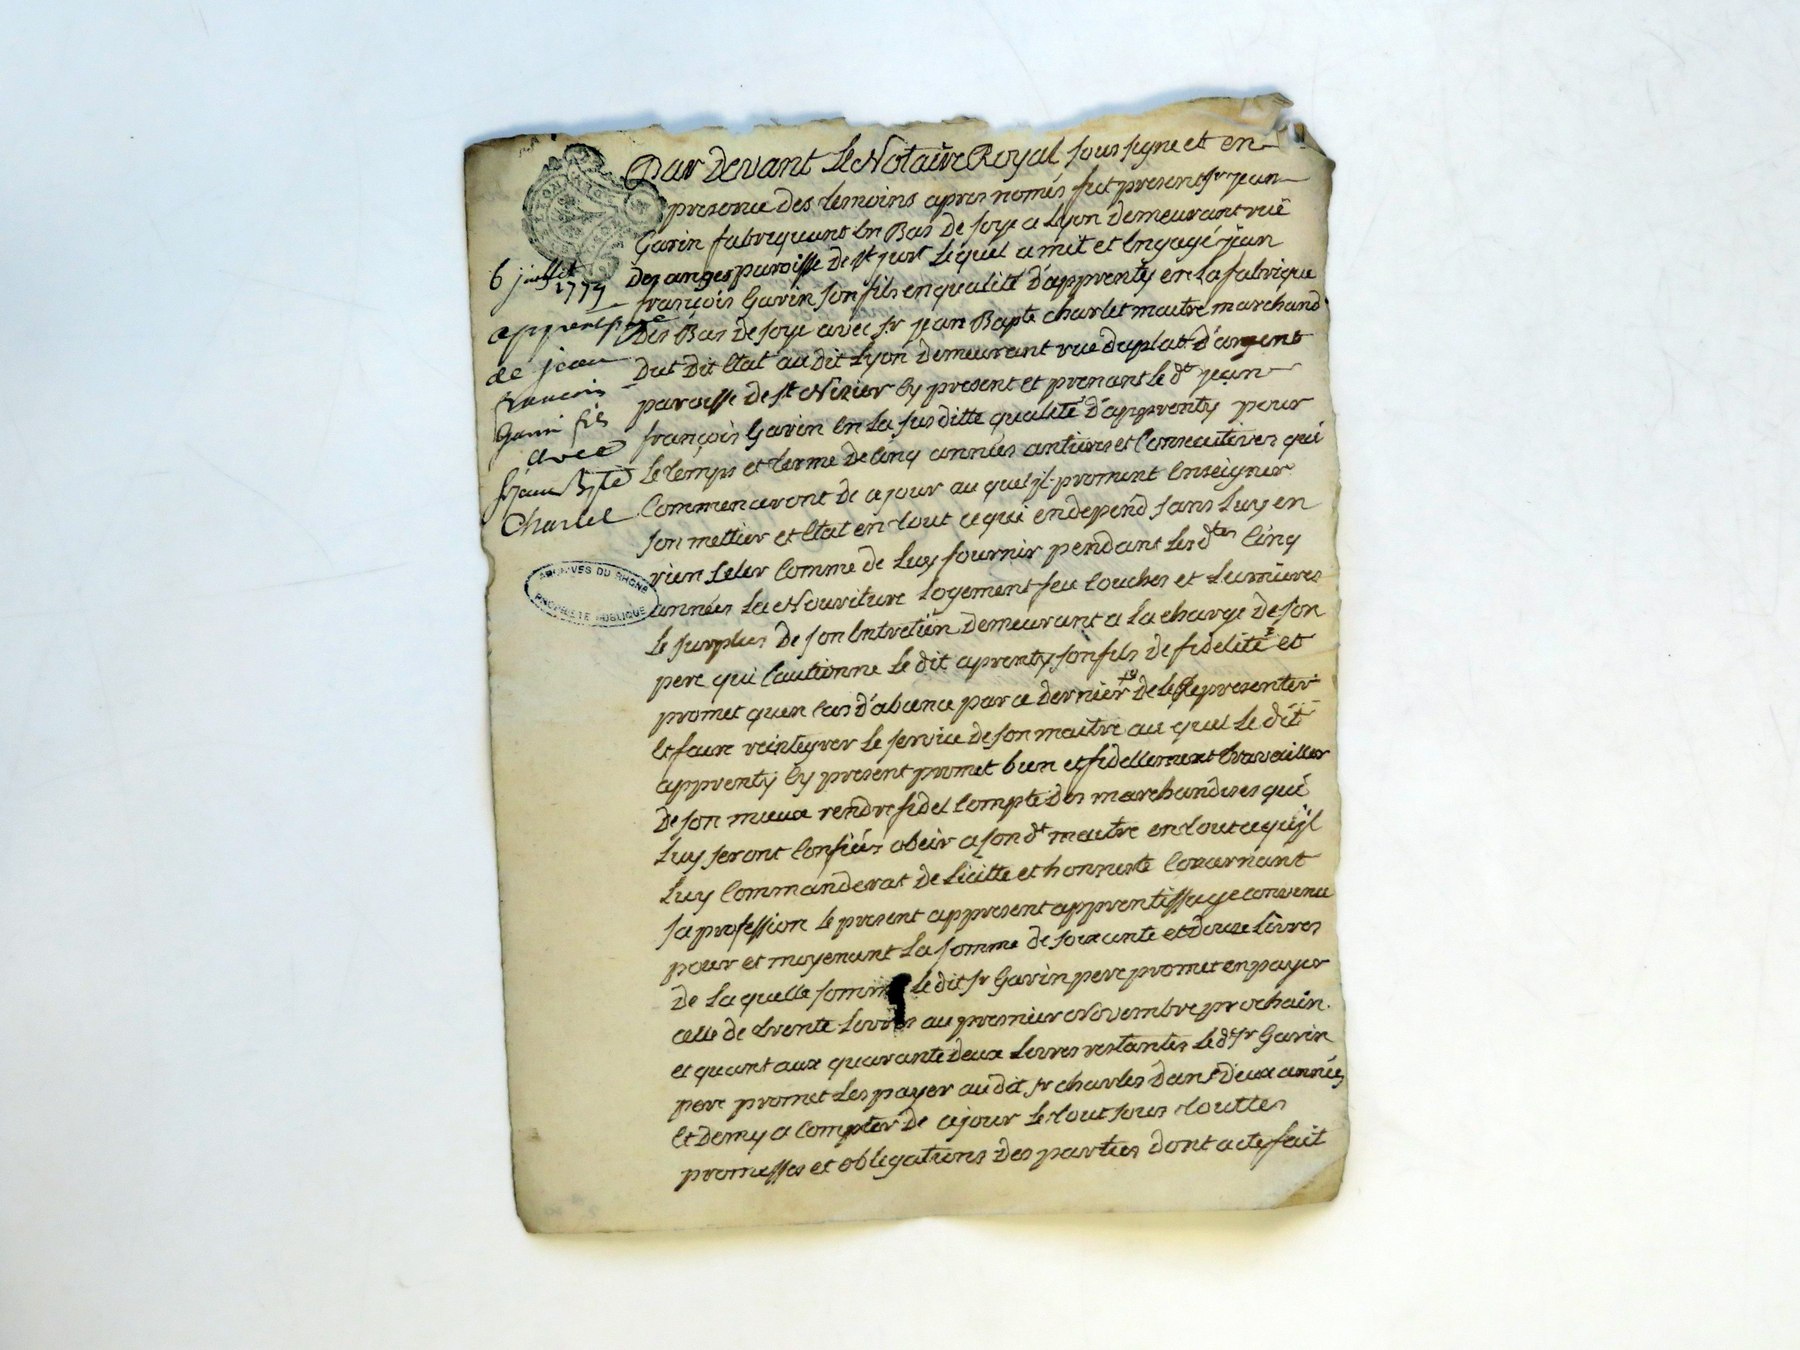 Par Devant Le Notaire Royal sous signe et en
presence des temoins apres només fut present sr jean
Garin fabriquant En Bas De soye a Lyon demeurant ruë
Des anges paroisse de st just Lequel a mit et Engagé jean
françois Garin son fils en qualité d'apprenty en La fabrique
Des Bas De soye avec sr jean Bapte charlet maitre marchand
Dut Dit Etat au Dit Lyon demeurant rue du plat d'argent
paroisse de st Nizier Cy present et prenant Le dt jean
françois Garin En La sus ditte qualité d'apprenty pour
Le temps et terme De Cinq années antieres et Consecutives qui
Commenceront de ce jour au quel jl proment Enseigner
son mettier et Etat en tout ce qui en depend sans Luy en
rien Celer Comme de Luy fournir pendant Les dtes Cinq
années La Nouriture Logement feu Couches et Lumieres
Le surplus De son Entretien Demeurant a La charge De son
pere qui Cautionne Le dit aprenty son fils de fidelité et
promet qu'en Cas d'abcence par ce dernier de Le Representer
Et faire reintegrer Le service de son maitre au quel Le dit
apprenty Cy present promet bien et fidellement travailler
De son mieux rendre fidel Compte Des marchandises qui
Luy seront Confiées obeir a son dt maitre en tout ce qu'jl
Luy Commanderat de Licitte et honneste Concernant
sa profession Le present appresent apprentissage convenu
pour et moyenant La somme de soixante et douze Livres
De La quelle somme Le dit sr Garin pere promet en payer
celle de trente Livres au premier Novembre prochain
et quant aux quarante Deux Livres restantes Le dt sr Garin
pere promet Les payer au dit sr charles Dans Deux années
Et Demy a Compter De ce jour Le tout sous touttes
promesses et obligations Des parties dont acte fait
6 juillet
1779
apprentissage
de jean
francois
Garin fils
avec
sr jean Bpte
Charlet
ARCHIVES DU RHONE
PROPRIETE PUBLIQUE